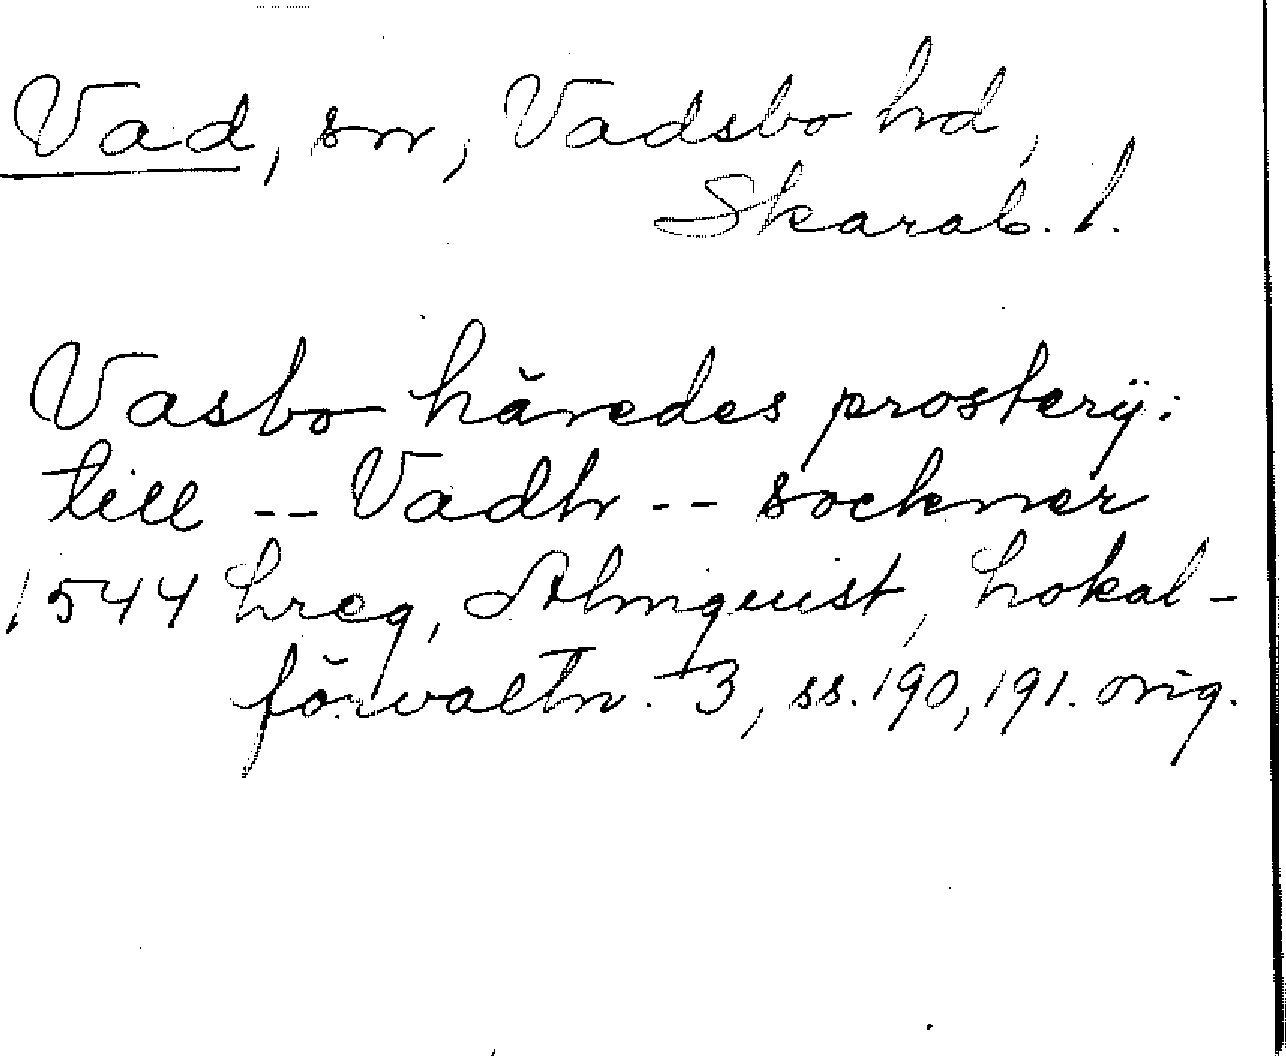 Vad, sn, Vadsbo hd,
Skarab. l.
Vasbo häredes prosterÿ:
till -- Vadh -- sockner
1544 hreg, Almquist, Lokal-
förvaltn. 3, ss. 190, 191. orig.